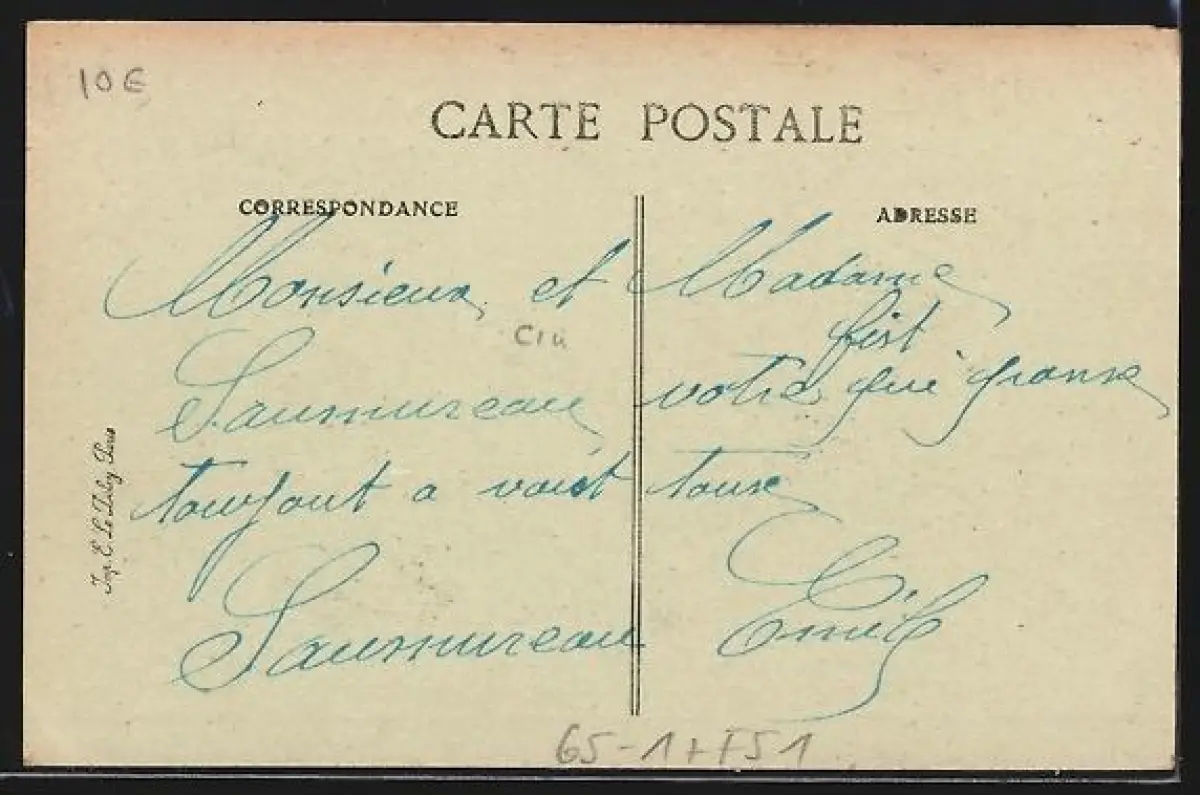 10€
CARTE POSTALE
CORRESPONDANCE
ADRESSE
Monsieur et Madame
Saumureau votre fist qui pranse
toujout a voist touse
Saumureau Emile
Imp. E. Le Deley Paris
65-1